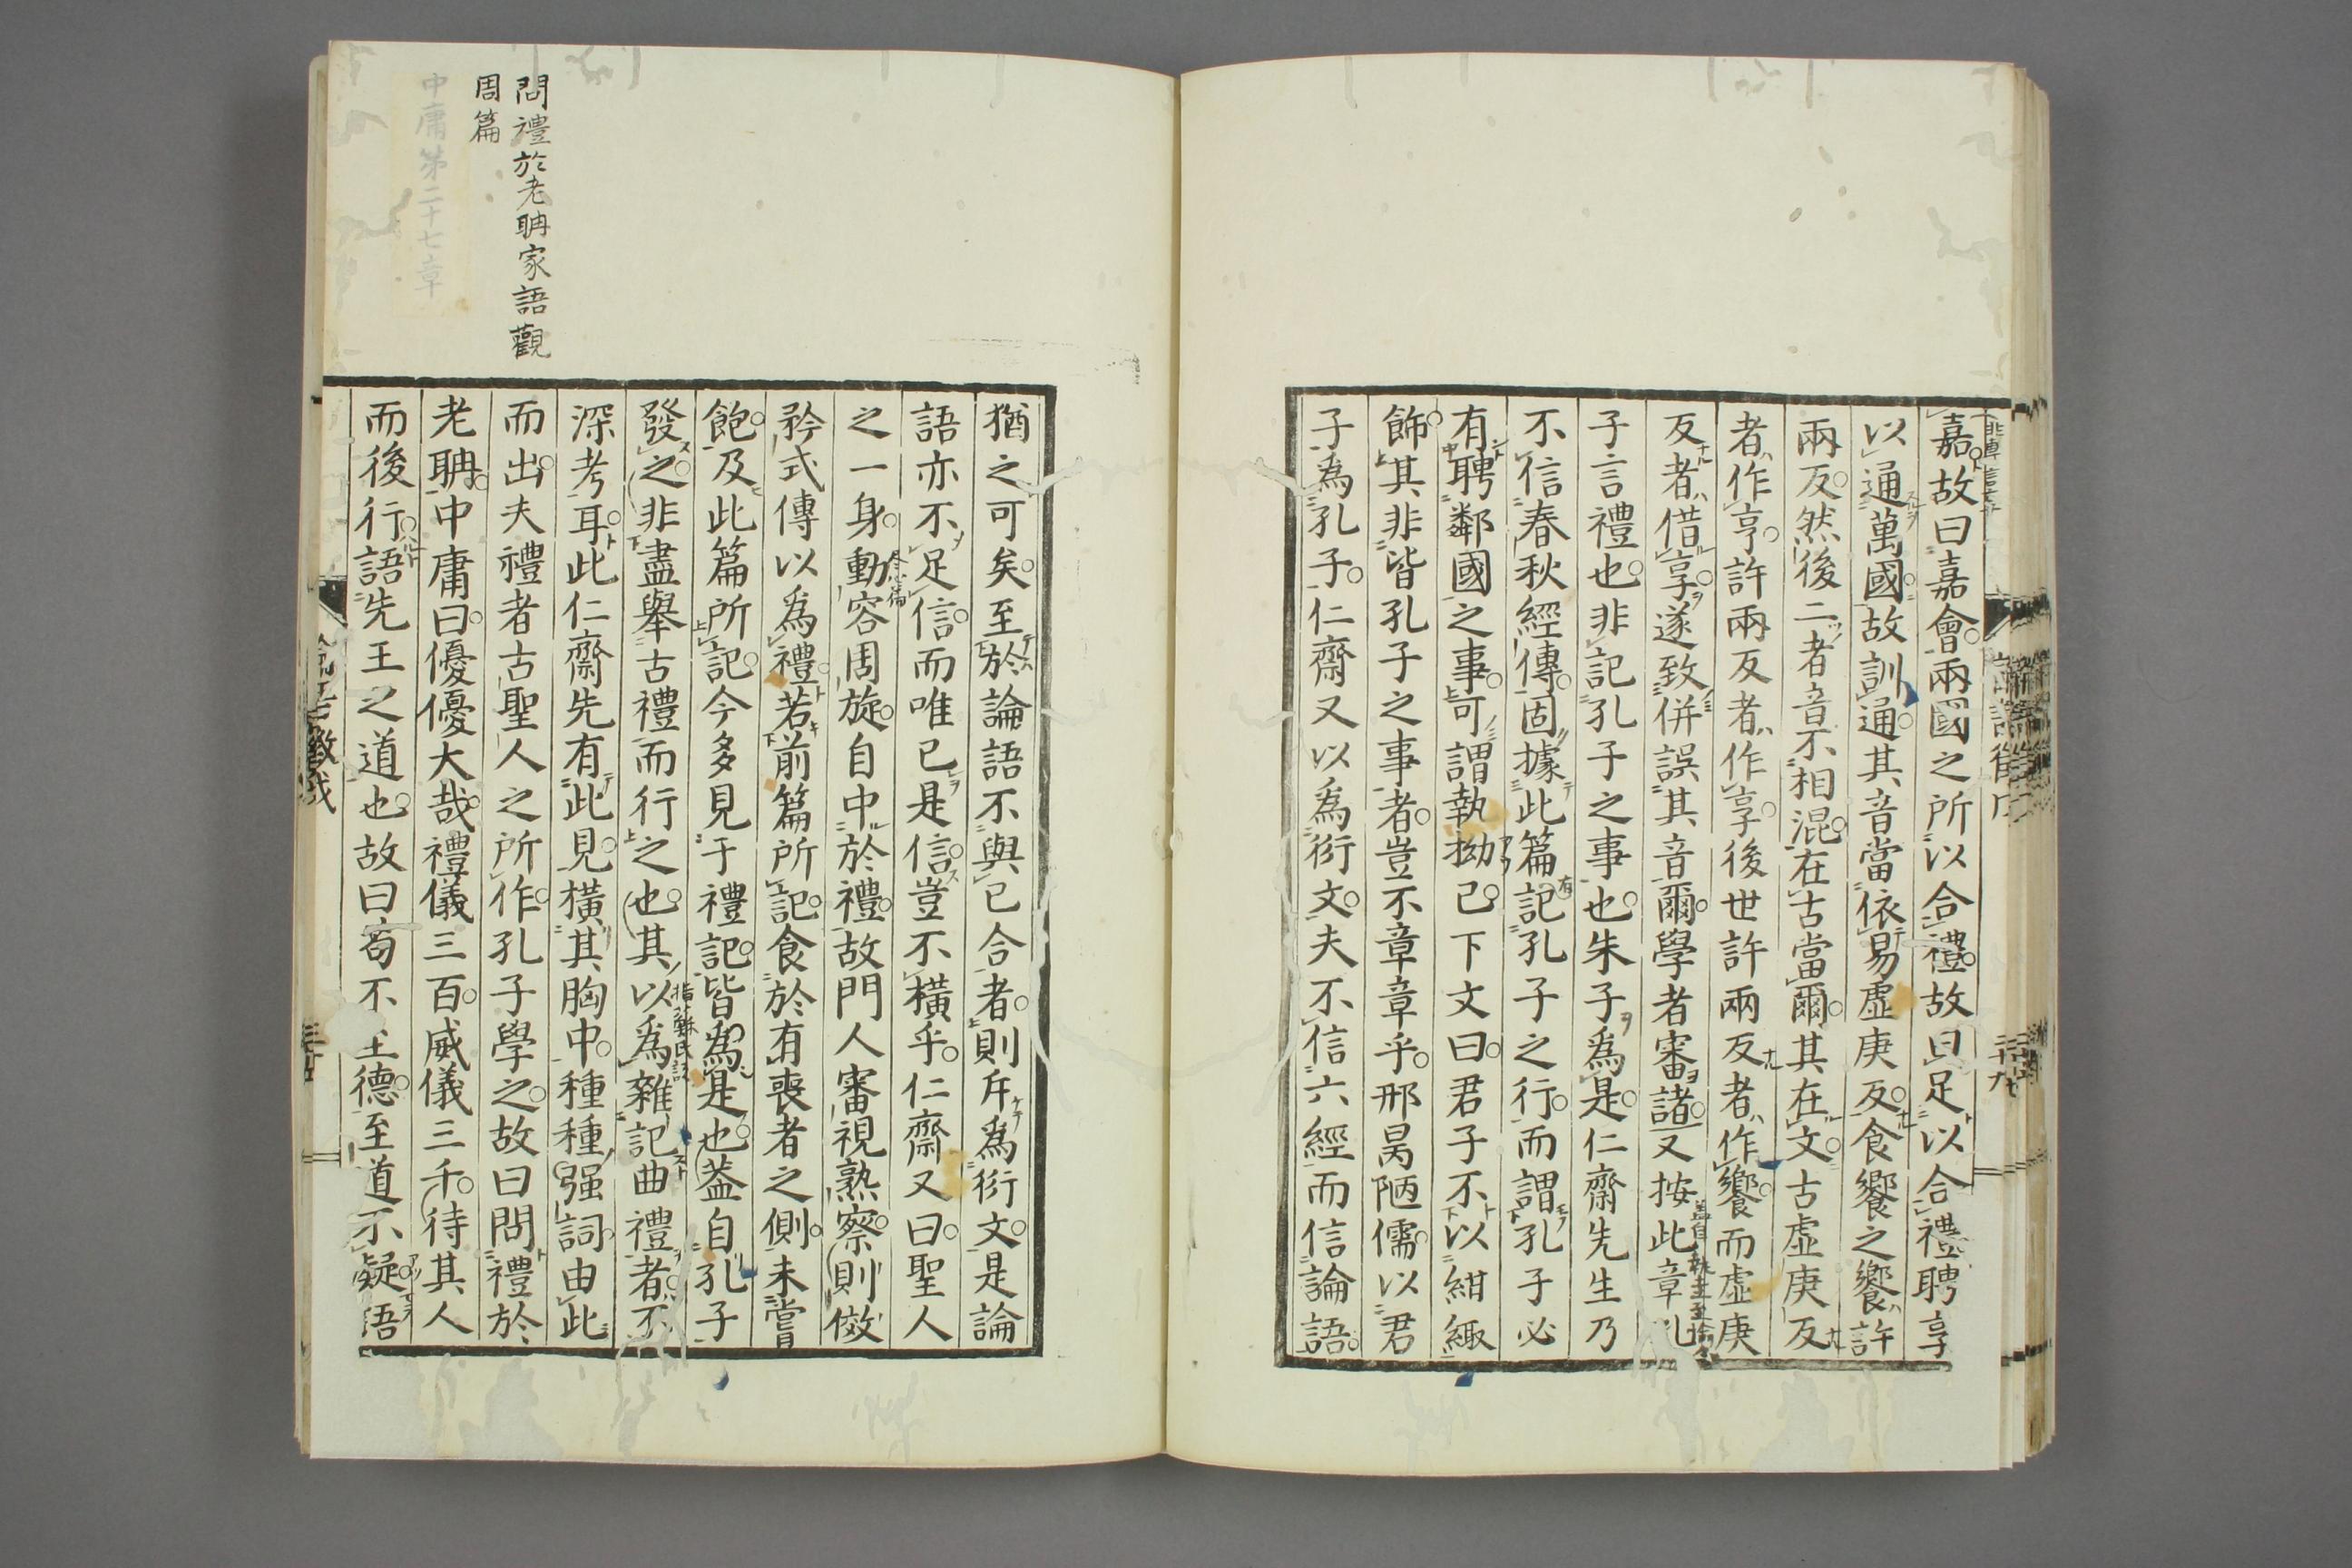 嘉故曰嘉會兩國之所以合禮故曰足以合禮聘享
以通萬國故訓通其音當依易虛庚反食饗之饗許
兩反然後二者音不相混在古當爾其在文古虛庚反
者作亨許兩反者作享後世許兩反者作饗而虛庚
反者借享遂致併誤其音爾學者審諸又按此章孔
子言禮也非記孔子之事也朱子為是仁齋先生乃
不信春秋經傳固據此篇記孔子之行而謂孔子必
有聘鄰國之事可謂執拗已下文曰君子不以紺緅
飾其非皆孔子之事者豈不章章乎邢昺陋儒以君
子為孔子仁齋又以為衍文夫不信六經而信論語
猶之可矣至於論語不與已合者則斥為衍文是論
語亦不足信而唯已是信豈不橫乎仁齋又曰聖人
之一身動容周旋自中於禮故門人審視熟察則倣
矜式傳以為禮若前篇所記食於有喪者之側未嘗
飽及此篇所記今多見于禮記皆為是也蓋自孔子
發之非盡舉古禮而行之也其以為雜記曲禮者不
深考耳此仁齋先有此見橫其胸中種種强詞由此
而出夫禮者古聖人之所作孔子學之故曰問禮於
老聃中庸曰優優大哉禮儀三百威儀三千待其人
而後行語先王之道也故曰苟不至德至道不凝語
問禮於老聃家語觀
周篇
中庸第二十七章